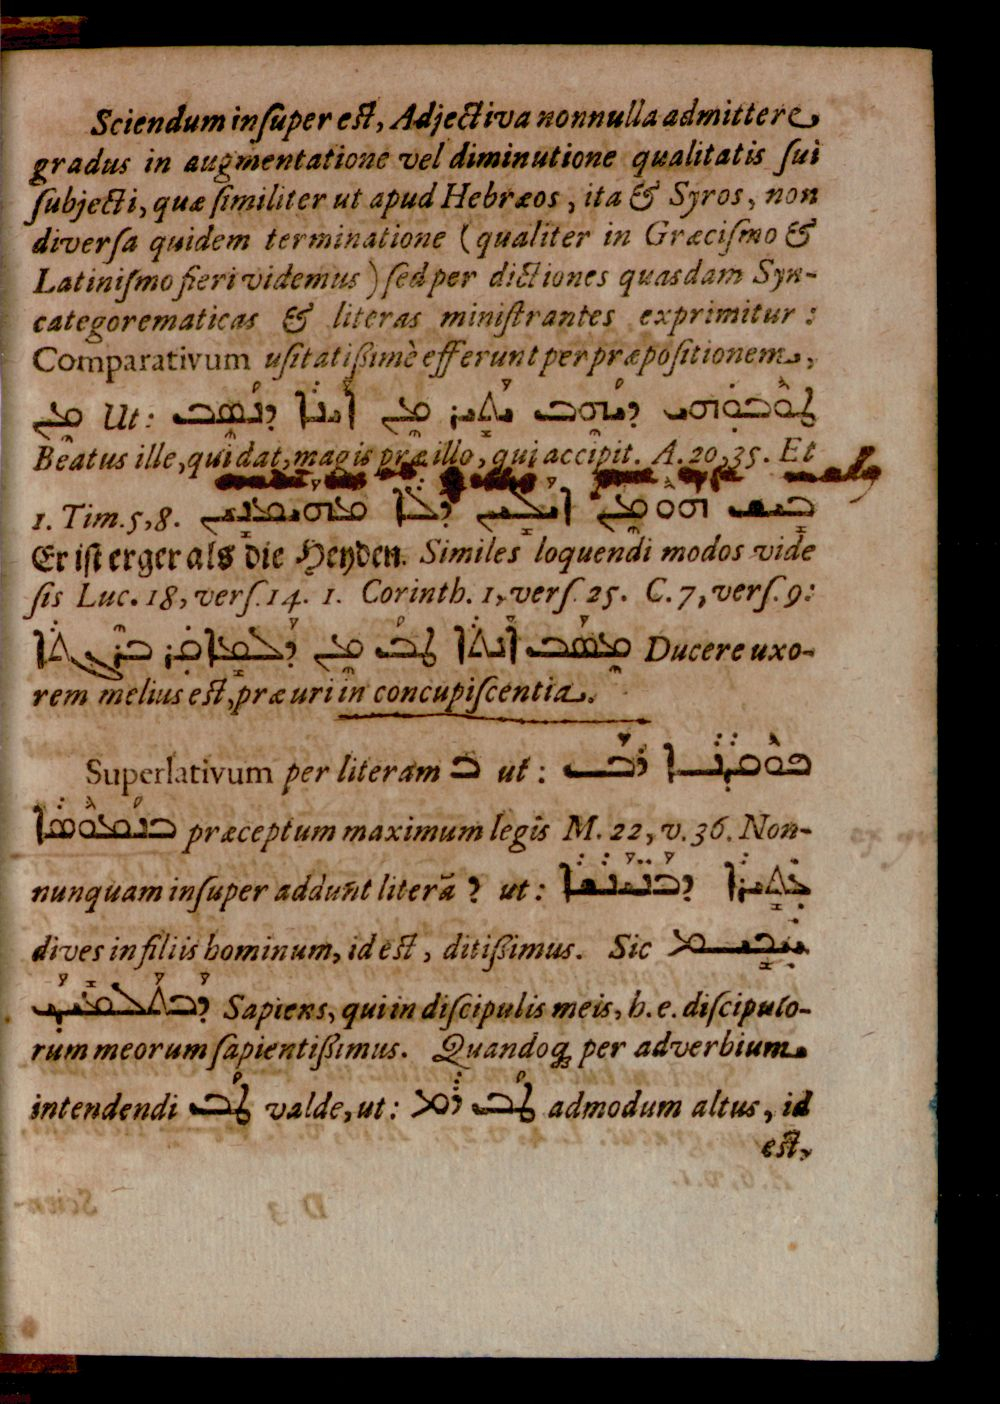 Sciendum insuper est, Adjectiva nonnulla admittere
gradus in augmentatione vel diminutione qualitatis sui
subjecti, quæ similiter ut apud Hebræos, ita & Syros, non
diversa quidem terminatione (qualiter in Græcismo &
Latinismo fieri videmus) sed per dictiones quasdam Syn-
categorematicas & literas ministrantes exprimitur:
Comparativum usitatissimè efferunt per præpositionem,
ܡܢ Ut: ܛܘܒܘܗܝ ܕܝܗܒ ܝܬܝܪ ܡܢ ܐܝܢܐ ܕܢܣܒ
Beatus ille, qui dat, magis præ illo, qui accipit. A. 20,35. Et
1. Tim. 5,8. ܒܝܫ ܗܘ ܡܢ ܐܝܠܝܢ ܕܠܐ ܡܗܝܡܢܝܢ
Er ist erger als die Heyden. Similes loquendi modos vide
sis Luc. 18, vers. 14. 1. Corinth. 1, vers. 25. C. 7, vers. 9:
ܠܡܣܒ ܐܢܬܬܐ ܛܒ ܡܢ ܕܠܡܐܩܕ ܒܪܓܬܐ Ducere uxo-
rem melius est, præ uri in concupiscentia.
Superlativum per literam ܒ ut: ܦܘܩܕܢܐ ܪܒ
ܒܢܡܘܣܐ præceptum maximum legis M. 22, v. 36. Non-
nunquam insuper addunt literã ܕ ut: ܥܬܝܪܐ ܕܒܢܝܢܫܐ
dives in filiis hominum, id est, ditissimus. Sic ܚܟܝܡ
ܕܒܬܠܡܝܕܝ Sapiens, qui in discipulis meis, h. e. discipulo-
rum meorum sapientissimus. Quandoq; per adverbium
intendendi ܛܒ valde, ut: ܛܒ ܪܡ admodum altus, id
est,